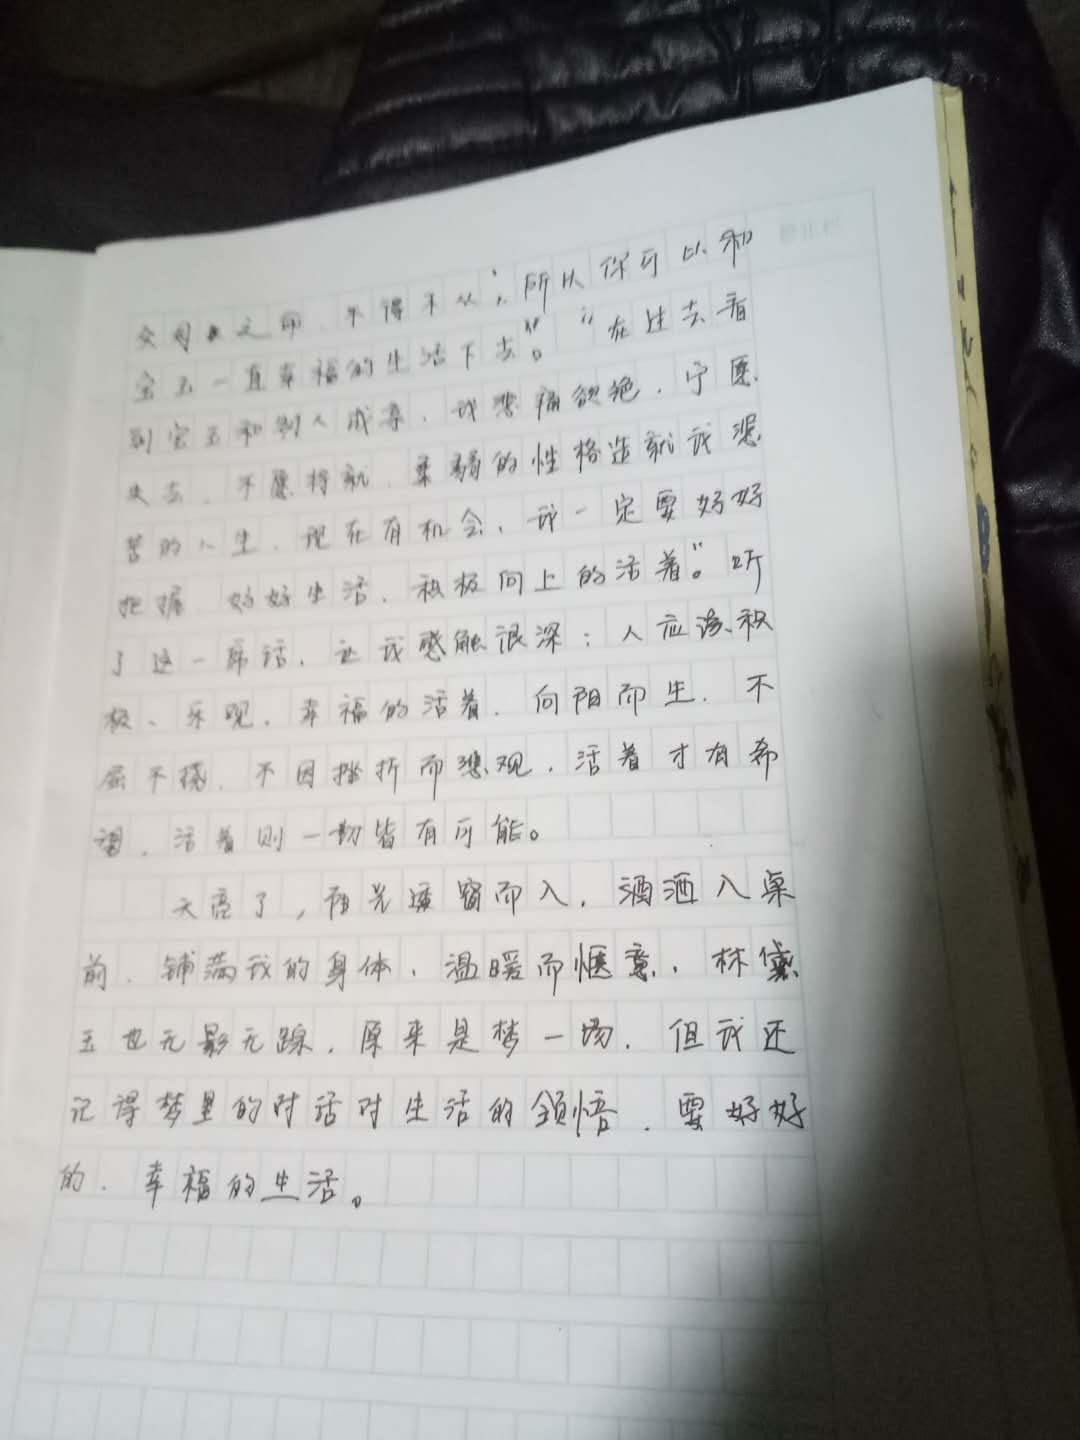 父母之命，不得不从，所以你可以和
宝玉一直幸福的生活下去”。“在过去看
到宝玉和别人成亲，我悲痛欲绝，宁愿
失去，不愿将就，柔弱的性格造就我悲
苦的人生，现在有机会，我一定要好好
把握，好好生活，积极向上的活着”。听
了这一席话，让我感触很深：人应该积
极、乐观，幸福的活着，向阳而生，不
屈不挠，不因挫折而悲观，活着才有希
望，活着则一切皆有可能。
天亮了，阳光透窗而入，洒洒入桌
前，铺满我的身体，温暖而惬意，林黛
玉也无影无踪，原来是梦一场，但我还
记得梦里的对话对生活的领悟，要好好
的，幸福的生活。